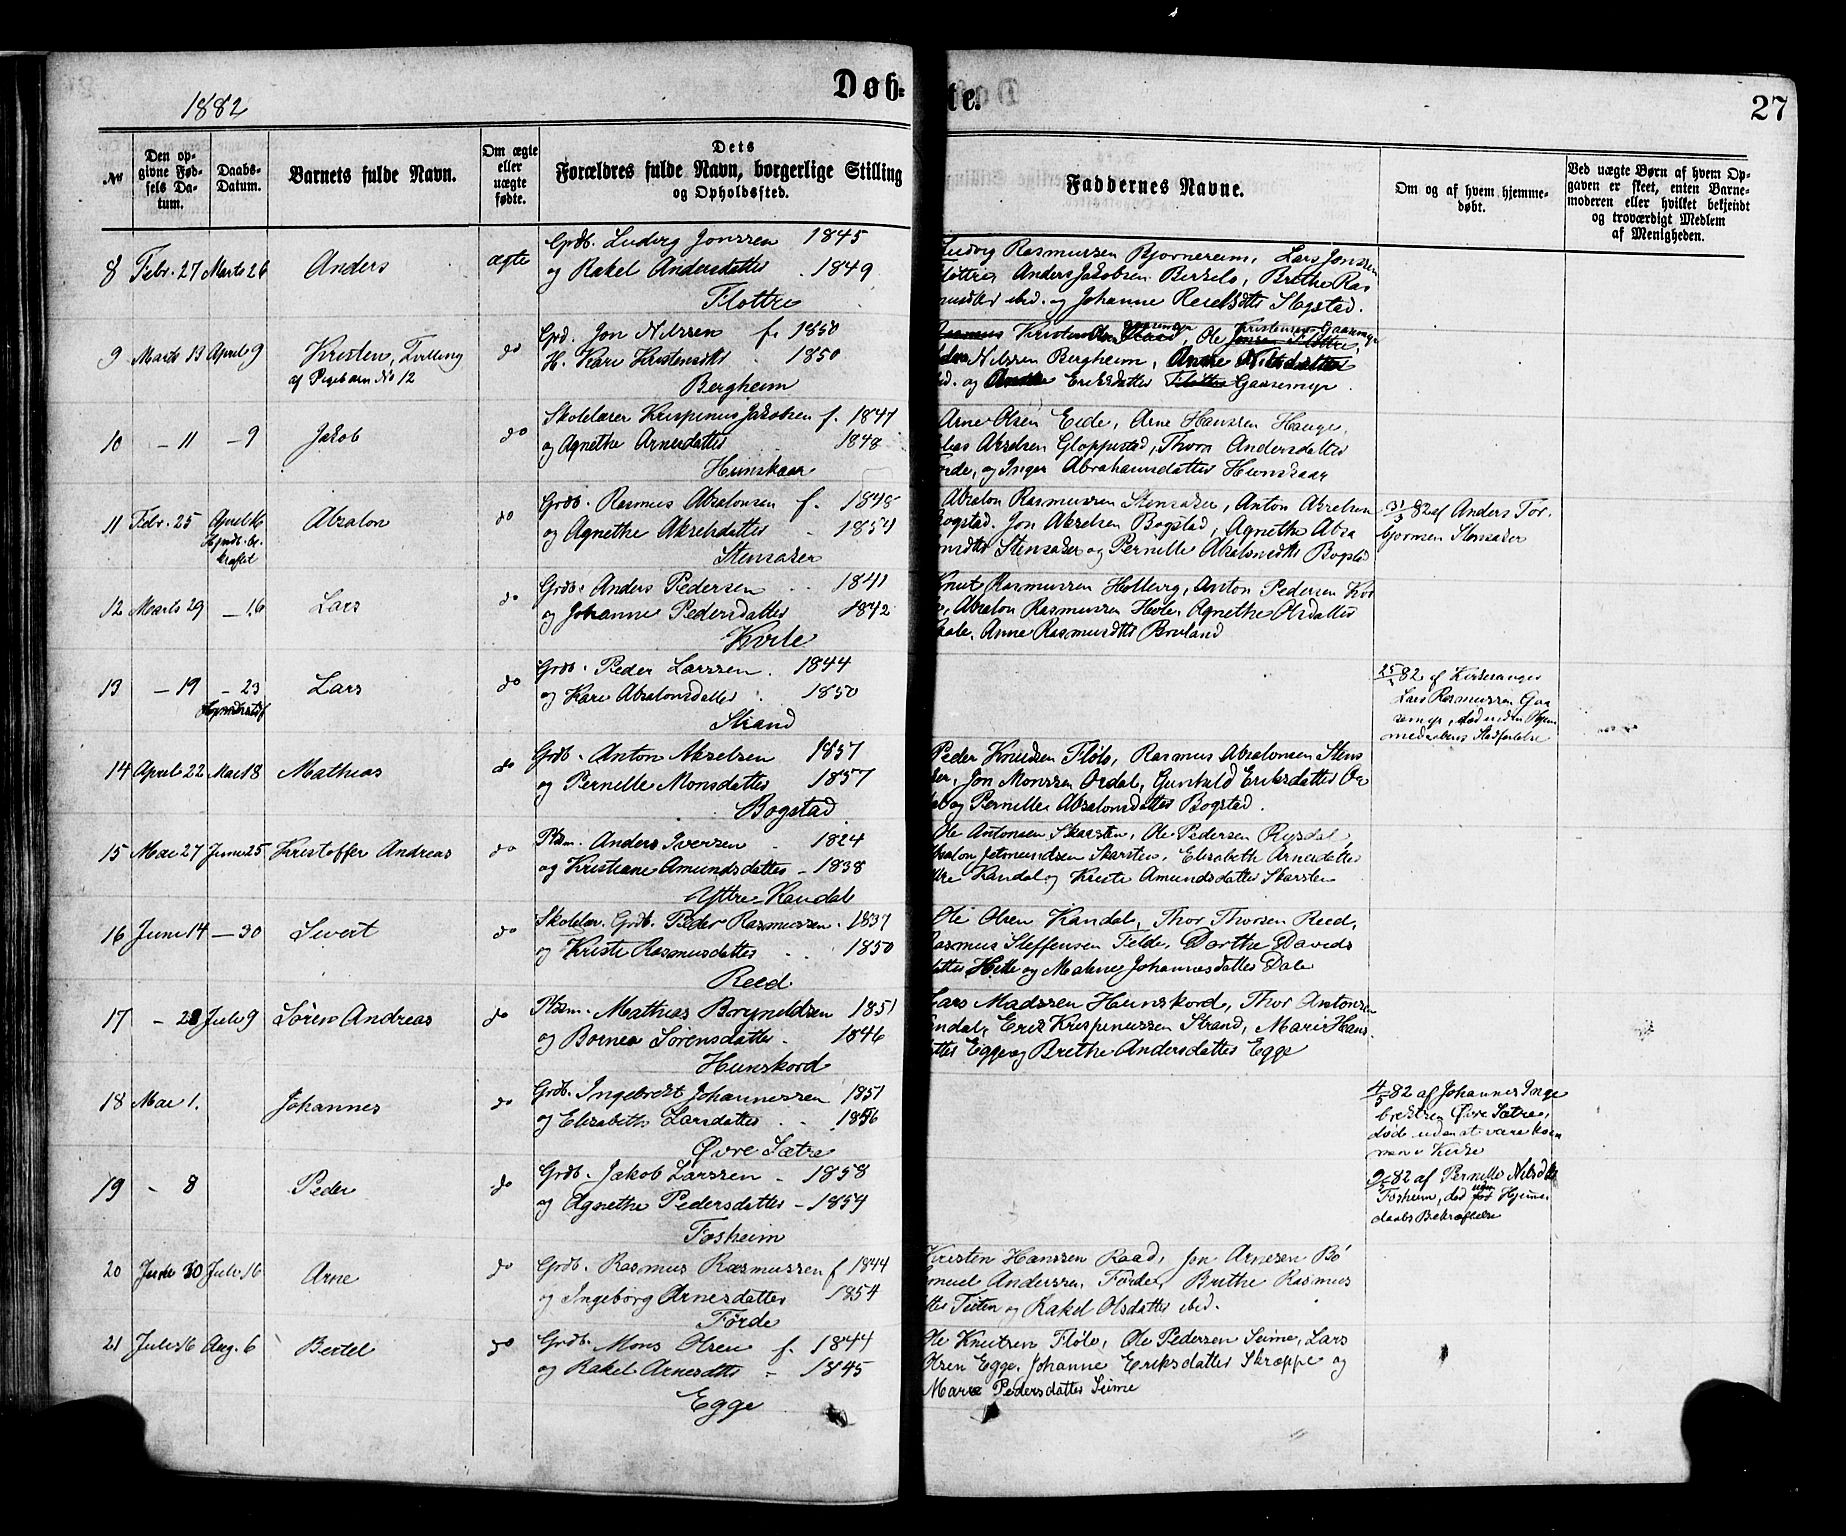 1882
Døb-
te.
27
No
Den opgivne Fødsels Datum.
Daabs-Datum.
Barnets fulde Navn.
Om ægte eller uægte fødte.
Dets Forældres fulde Navn, borgerlige Stilling og Opholdssted.
Faddernes Navne.
Om og af hvem hjemmedøbt.
Ved uægte Børn af hvem Opgaven er skeet, enten Barnemoderen eller hvilket bekjendt og troværdigt Medlem af Menigheden.
8 Febr. 27 Marts 26 Anders ægte
Grdb. Ludvig Jonssen 1845
og Rakel Andersdatter 1849
Flottre
Ludvig Rasmussen Bjørnereim, Lars Jonssen
Flottre, Anders Jakobsen Berkelo, Brithe Ras
ibid. og Johanne
9 Marts 13 April 9 Kristen, Tvilling do
af Pigebarn No 12
Grd. Jon Nilssen f. 1850
H. Kari Kristensdtr 1850
Bergheim
Kristensen Gaasemyr
Nilssen Bergheim,
og Eriksdatter Gaasemyr.
10 - 11 - 9 Jakob do
Skolelærer Krispinus Jakobsen f. 1847
og Agnethe Arnesdatter 1848
Hunskaar
Arne Olsen Eide, Arne Hanssen Hauge,
Akselsen Gloppestad, Thora Andersdatter
Førde, og Inger Abrahamsdatter Hunskaar
11 Febr. 25 April 16 Absalon do
Hjmdb. be-
kræftet
Grdb. Rasmus Absalonsen f. 1848
og Agnethe Akselsdatter 1854
Stensaker
Absalon Rasmussen Stensaker, Anton Akselsen
Bogstad, Jon Akselsen Bogstad, Agnethe Absa
Stensaker og Pernille Absalonsdtr Bogstad
3/3 82 af Anders Tor-
bjørnsen Stensaker
12 Marts 29 - 16 Lars do
Grdb. Anders Pedersen 1841
og Johanne Pedersdatter 1842
Kvile
Knut Rasmussen Hellevig, Anton Pedersen
Absalon Rasmussen Agnethe Olsdatter
Anne Rasmusdtr Bruland
13 - 19 - 23 Lars do
Grdb. Peder Larssen 1844
og Kari Absalonsdatter 1850
Strand
82 af Kirkesanger
Lars Rasmussen Gaa
semyr, død uden Hjem
medaabens Stadfæstelse
14 April 22 Mai 18 Mathias do
Grdb. Anton Akselsen 1857
og Pernille Monsdatter 1857
Bogstad
Peder Knudsen Fløla, Rasmus Absalonsen Stens
aker, Jon Monssen Ordal, Gunhild Eriksdatter Or
dal og Pernille Absalonsdatter Bogstad.
15 Mai 27 Juni 25 Kristoffer Andreas do
Plsm. Anders Iversen 1824
og Kristiane Amundsdatter 1838
Ytre Kandal
Ole Antonsen Skarsten, Ole Pedersen Rysdal,
Absalon Jetmundsen Skarsten, Elisabeth Arnesdatter
Kandal og Kristi Amundsdatter Skarsten
16 Juni 14 - 30 Sivert do
Skolelær. Grdb. Peder Rasmussen 1837
og Kristi Rasmusdatter 1850
Reed
Ole Olsen Kandal, Thor Thorsen Reed,
Rasmus Steffensen Felde, Dorthe Davids
datter Hetle og Malene Johannesdatter Dale
17 - 28 Juli 9 Søren Andreas do
Plsm. Mathias Brynildsen 1851
og Bornea Sørensdatter 1846
Hunskord
Lars Madssen Hunskord, Thor Antonsen
Erik Krispinussen Strand, Mari Hans
datter Egge og Brithe Andersdatter Egge
18 Mai 1. Johannes do
Grdb. Ingebrekt Johannessen 1851
og Elisabeth Larsdatter 1856
Øvre Sætre
4/5 82 af Johannes Inge
brektsen Øvre Sætre,
død uden at være kom
men i Kirke
19 - 8 Peder do
Grdb. Jakob Larssen 1858
og Agnethe Pedersdatter 1854
Fosheim
9/5 82 af Pernille Nilsdtr
Fosheim, død uden Hjemme
daabs Bekræftelse
20 Juni 30 Juli 16 Arne do
Grdb. Rasmus Rasmussen f 1844
og Ingeborg Arnesdatter 1854
Førde
Kristen Hanssen Raad, Jon Arnesen Bø
Anderssen Førde, Brithe Rasmus
Teiten og Rakel Olsdatter ibid.
21 Juli 16 Aug. 6 Bertel do
Grdb. Mons Olsen f. 1844
og Rakel Arnesdtr 1845
Egge
Ole Knutsen Fløla, Ole Pedersen Seime, Lars
Olsen Egge, Johanne Eriksdatter Skrøppe og
Mari Pedersdatter Seime